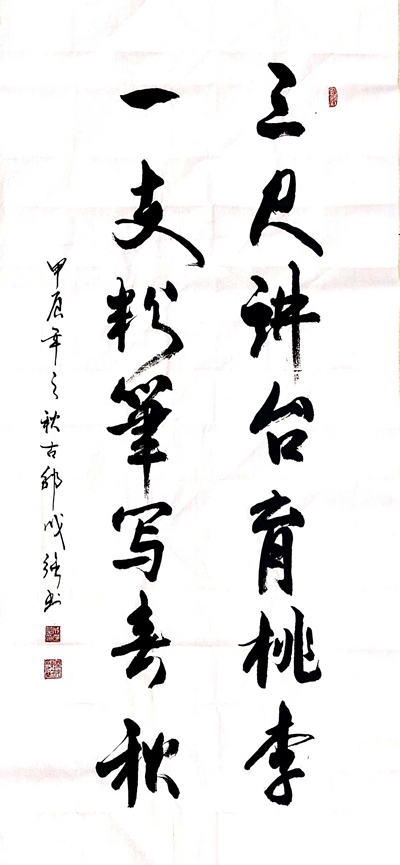 三尺讲台育桃李
一支粉筆写春秋
甲辰年之秋古邺成强书